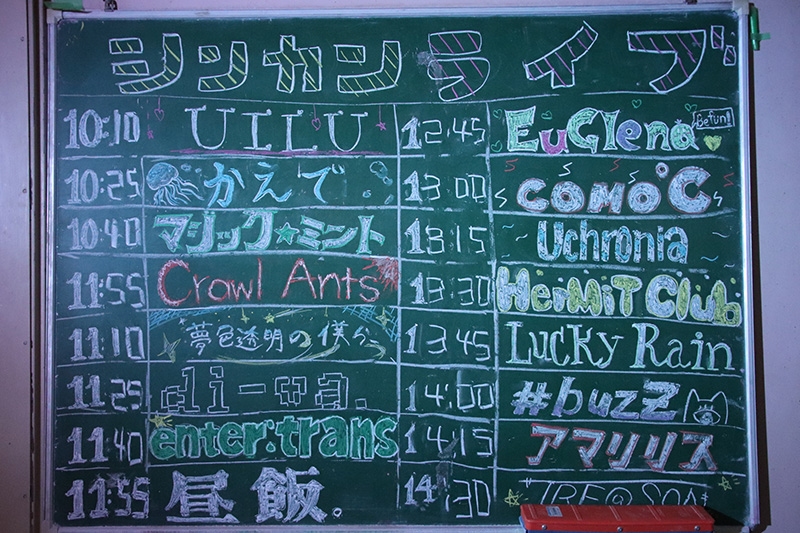 シンカンライブ
10:10 UILU
10:25 かえで
10:40 マジック☆ミント
11:55 Crawl Ants
11:10 夢色透明の僕ら
11:25 di-va.
11:40 enter:trans
11:55 昼飯
12:45 EuGlena Befun!
13:00 COMO℃
13:15 Uchronia
13:30 HerMiT Club
13:45 Lucky Rain
14:00 #buzZ
14:15 アマリリス
14:30